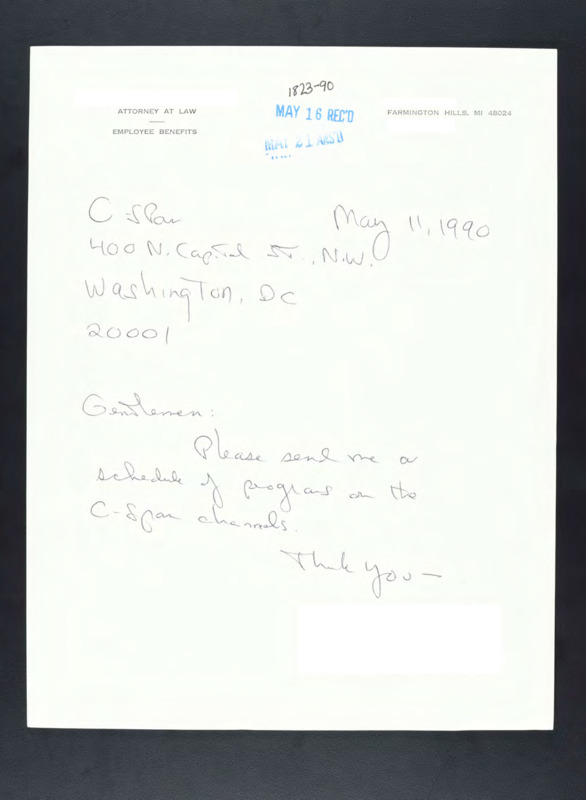 1823-90
ATTORNEY AT LAW
EMPLOYEE BENEFITS
MAY 16 REC'D
MAY 21 ANS'D
FARMINGTON HILLS, MI 48024
C-Span
May 11, 1990
400 N. Capital St., N.W.
Washington, DC
20001
Gentlemen:
Please send me a
schedule of programs on the
C-Span channels.
Thank you—